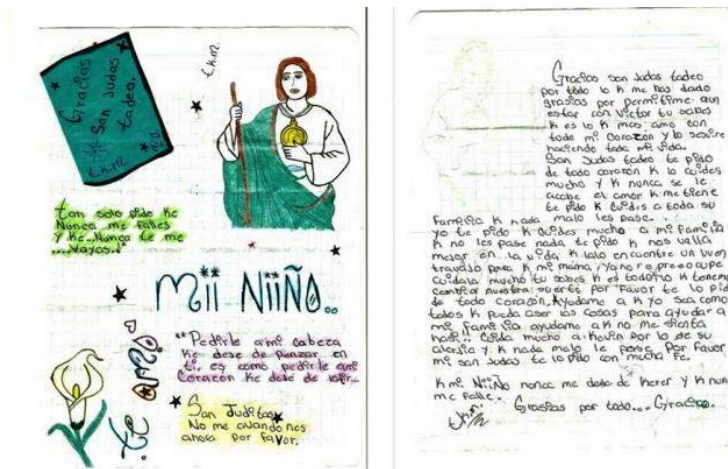 Gracias
San Judas
tadeo.
t.k.m.
t.k.m.
tan solo pido Ke
Nunca me falles
y Ke...Nunca te me
....vayas..
Mii NiiÑo..
"Pedirle a mi cabeza
Ke deje de penzar en
ti, es como pedirle ami
Corazon Ke deje de latir...
San Juditas
No me avandones
ahora Por favor.
Gracias san Judas tadeo
por todo lo k me has dado
grasias por permitirme aun
estar con Victor tu sabes
k es lo k mas amo con
todo mi Corazón y lo seguire
haciendo toda mi vida.
San Judas tadeo te pido
de todo corazón k lo cuides
mucho y k nunca se le
acabe el amor k me tiene
te pido k cuides a toda su
familia k nada malo les pase....
yo te pido k cuides mucho a mi familia
k no les pase nada te pido k nos valla
mejor en la vida k lalo encuentre un buen
travajo para k mi mama, ya no re preocupe
cuidalo mucho tu sabes k es
cambiar nuestra suerte por favor te lo pido
de todo corazón. Ayudame a k yo sea como
todos k pueda aser las cosas para ayudar a
mi familia ayudame a k no me sienta
Cuida mucho a Kevin por lo de su
alergia y k nada malo le pase por favor
mi san Judas te lo pido con mucha fe.
K mi NiiÑo nunca me deje de Kerer y k nunca
me falle.
Grasias por todo... Gracias.